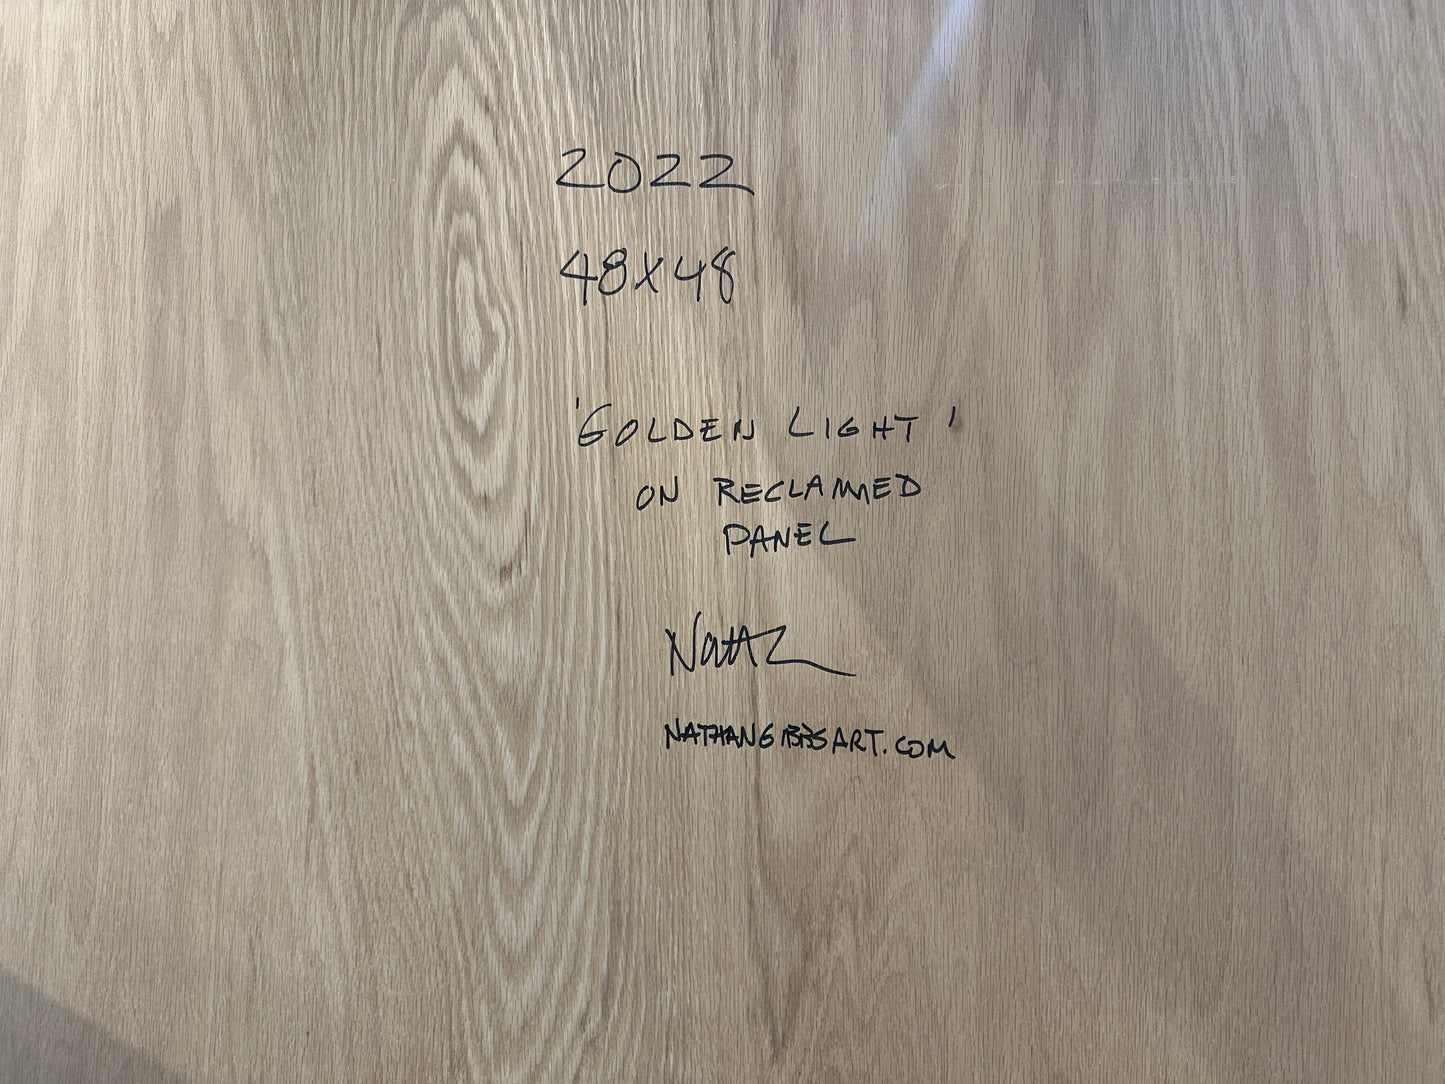 2022
48x48
'GOLDEN LIGHT'
ON RECLAIMED
PANEL
Nath
NATHANGIBBSART.COM